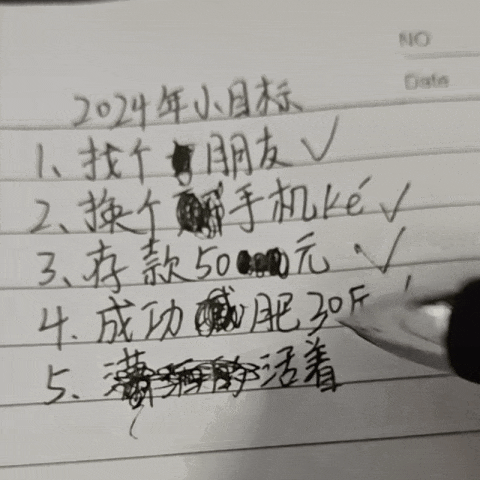 NO
Date
2024年小目标
1、找个朋友✓
2、换个手机ké✓
3、存款50元✓
4.成功肥30斤
5、活着